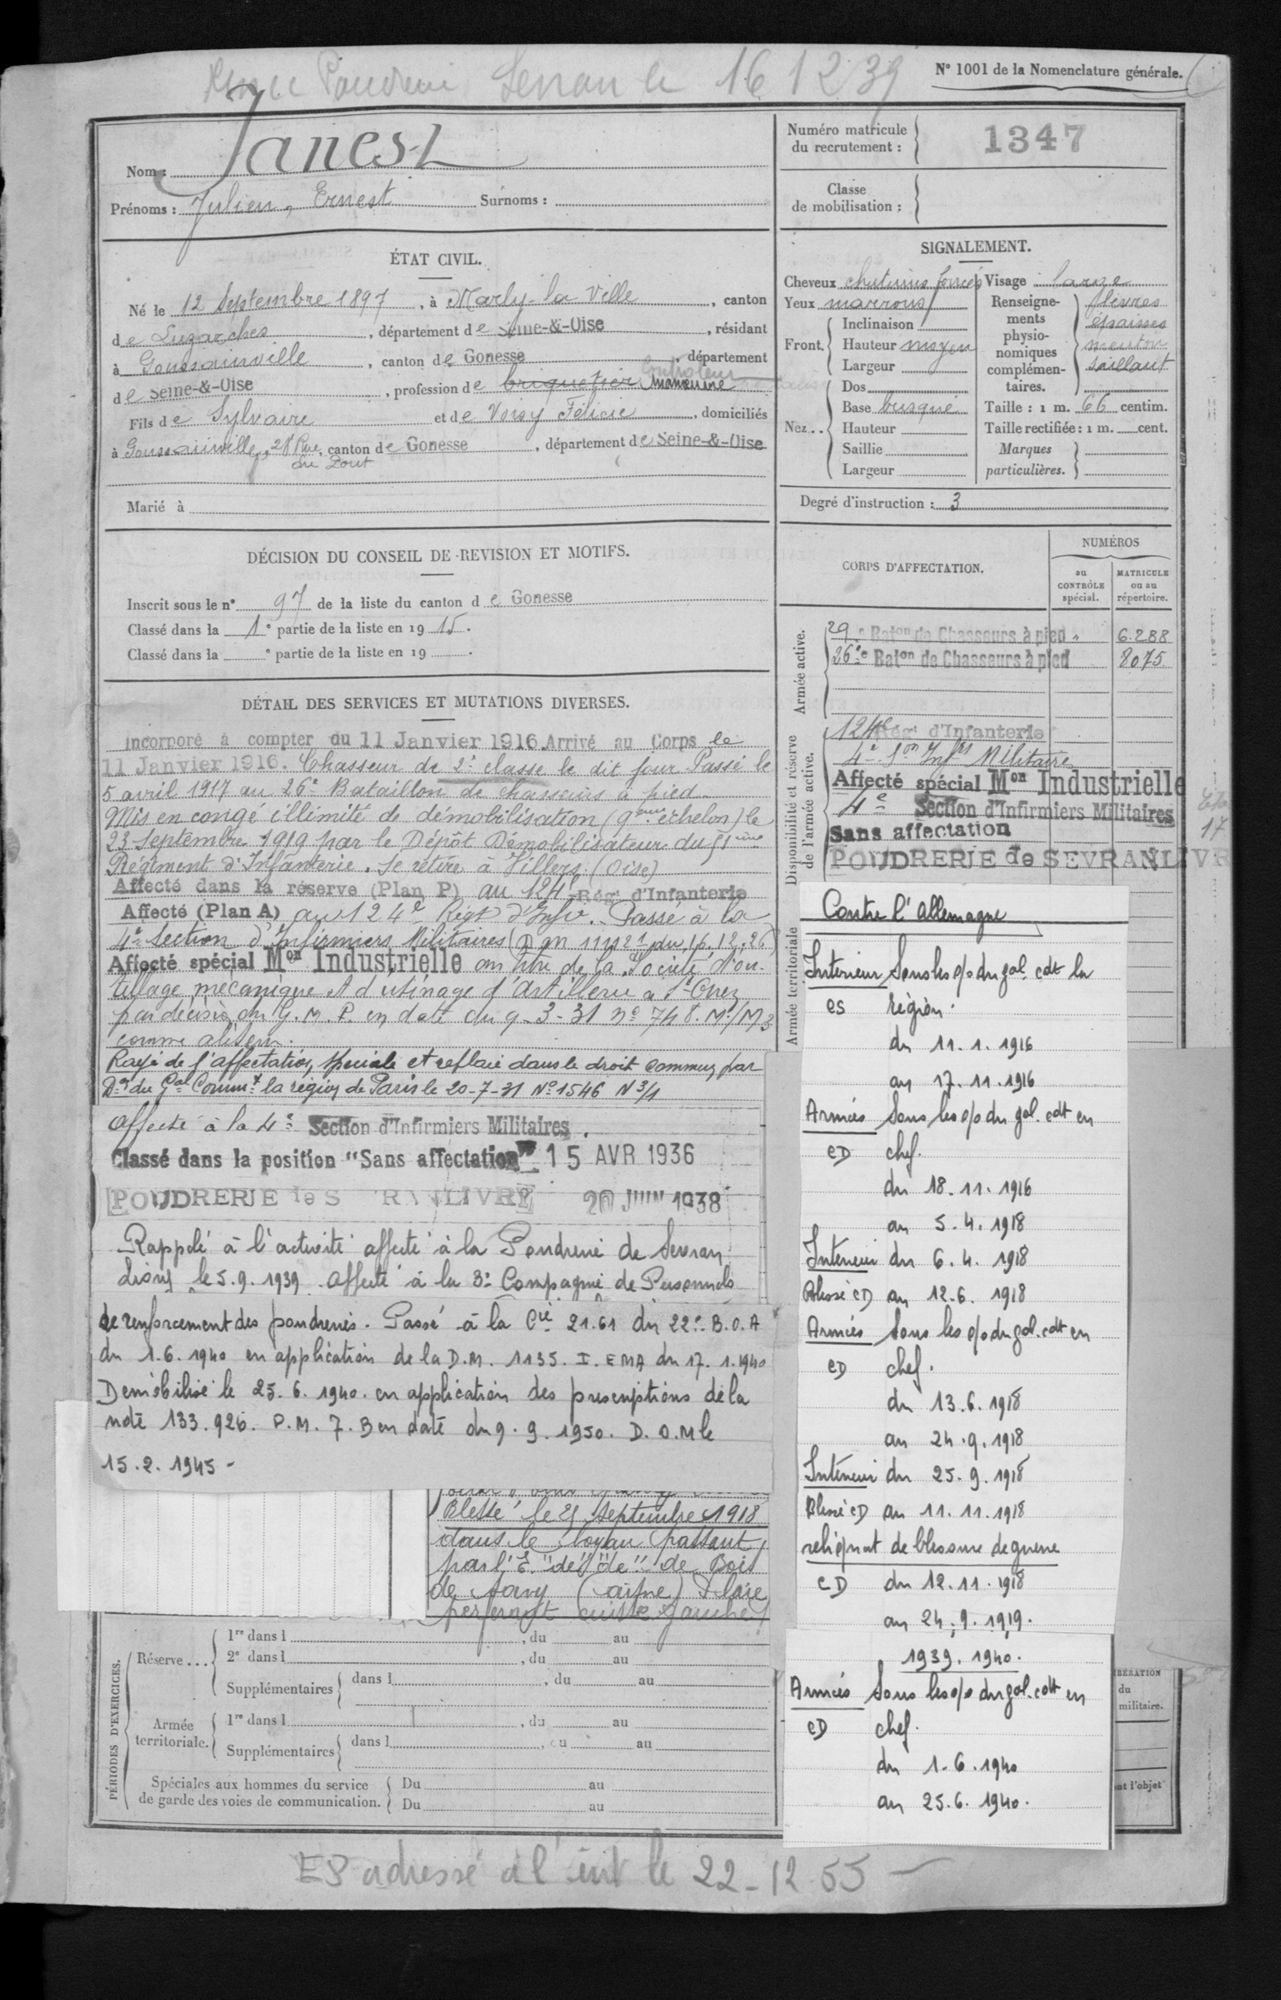 Sevran le 16 12 39
N° 1001 de la Nomenclature générale.
Nom : Janest
Prénoms : Julien, Ernest Surnoms :
ÉTAT CIVIL.
Né le 12 Septembre 1897, à Marly-la-Ville, canton
de Luzarches, département de Seine-&-Oise, résidant
à Goussainville, canton de Gonesse, département
Controleur
de Seine-&-Oise, profession de briquetier manœuvre
Fils de Sylvaire et de Voisy Félicie, domiciliés
à Goussainville, 28 Rue, canton de Gonesse, département de Seine-&-Oise
du Pont
Marié à
DÉCISION DU CONSEIL DE REVISION ET MOTIFS.
Inscrit sous le n° 97 de la liste du canton de Gonesse
Classé dans la 1e partie de la liste en 1915.
Classé dans la e partie de la liste en 19 .
DÉTAIL DES SERVICES ET MUTATIONS DIVERSES.
Incorporé à compter du 11 Janvier 1916. Arrivé au Corps le
11 Janvier 1916. Chasseur de 2e classe le dit jour. Passé le
5 avril 1917 au 26e Bataillon de chasseurs à pied
Mis en congé illimité de démobilisation (9eme échelon) le
23 Septembre 1919 par le Dépôt Démobilisateur du 51ème
Régiment d'Infanterie. Se retire à Villers (Oise)
Affecté dans la réserve (Plan P) au 124e Rég. d'Infanterie
Affecté (Plan A) au 124e Régt d'Infie. Passé à la
4e Section d'Infirmiers Militaires (D.M. 11121 du 16.12.26)
Affecté spécial Mon Industrielle au titre de la Société d'ou-
tillage mécanique et d'usinage d'Artillerie à St Ouen
par décision du G.M.P. en date du 9-3-31 n° 748. M/M3
comme
Rayé de l'affectation spéciale et replacé dans le droit commun par
Don du Gal Commt la région de Paris le 20-7-31 N° 1546 N3/4
Affecté à la 4e Section d'Infirmiers Militaires.
Classé dans la position "Sans affectation" 15 AVR 1936
POUDRERIE de S RANLIVRY 20 JUIN 1938
Rappelé à l'activité affecté à la Poudrerie de Sevran
Livry le 5.9.1939. affecté à la 3e Compagnie de Personnels
de renforcement des poudreries. Passé à la Cie 21.61 du 22e B.O.A
du 1.6.1940 en application de la D.M. 1135. I. EMA du 17.1.1940
Démobilisé le 25.6.1940. en application des prescriptions de la
note 133.926. P.M. 7. B en date du 9.9.1950. D.O.M le
15.2.1945 -
Blessé le 21 Septembre 1918
dans le boyau passant
par l'E. "de" "de" de Bois
de Savy (Aisne) Plaie
cuisse gauche
PÉRIODES D'EXERCICES.
Réserve... 1re dans l , du au
2e dans l , du au
Supplémentaires dans l , du au
Armée territoriale. 1re dans l , du au
Supplémentaires dans l , du au
Spéciales aux hommes du service Du au
de garde des voies de communication. Du au
Numéro matricule
du recrutement : 1347
Classe
de mobilisation :
SIGNALEMENT.
Cheveux chatains foncés Visage large
Yeux marrons
Front. Inclinaison
Hauteur moyen
Largeur
Nez.. Dos
Base busqué
Hauteur
Saillie
Largeur
Renseigne-
ments
physio-
nomiques
complémen-
taires.
lèvres
épaisses
menton
saillant
Taille : 1 m. 66 centim.
Taille rectifiée : 1 m. cent.
Marques
particulières.
Degré d'instruction : 3
CORPS D'AFFECTATION.
NUMÉROS
au
CONTRÔLE
spécial.
MATRICULE
ou au
répertoire.
Armée active.
29e Baton de Chasseurs à pied " 6.288
26e Baton de Chasseurs à pied 8075
Disponibilité et réserve
de l'armée active.
124e Rég. d'Infanterie
4e Son Infrs Militaire
Affecté spécial Mon Industrielle
4e Section d'Infirmiers Militaires
Sans affectation
17
POUDRERIE de SEVRANLIVR
Armée territoriale
Contre l'Allemagne
Intérieur Sous les o/o du gal. cdt la
CS région
du 11.1.1916
au 17.11.1916
Armées Sous les o/o du gal. cdt en
CD chef.
du 18.11.1916
au 5.4.1918
Intérieur du 6.4.1918
Blessé CD au 12.6.1918
Armées Sous les o/o du gal. cdt en
CD chef.
du 13.6.1918
au 24.9.1918
Intérieur du 25.9.1918
Blessé CD au 11.11.1918
reliquat de blessure de guerre
CD du 12.11.1918
au 24.9.1919.
1939.1940.
Armées Sous les o/o du gal. cdt en
CD chef.
du 1.6.1940
au 25.6.1940.
IBÉRATION
du
militaire.
nt l'objet
ES adressé à l'int le 22-12-55